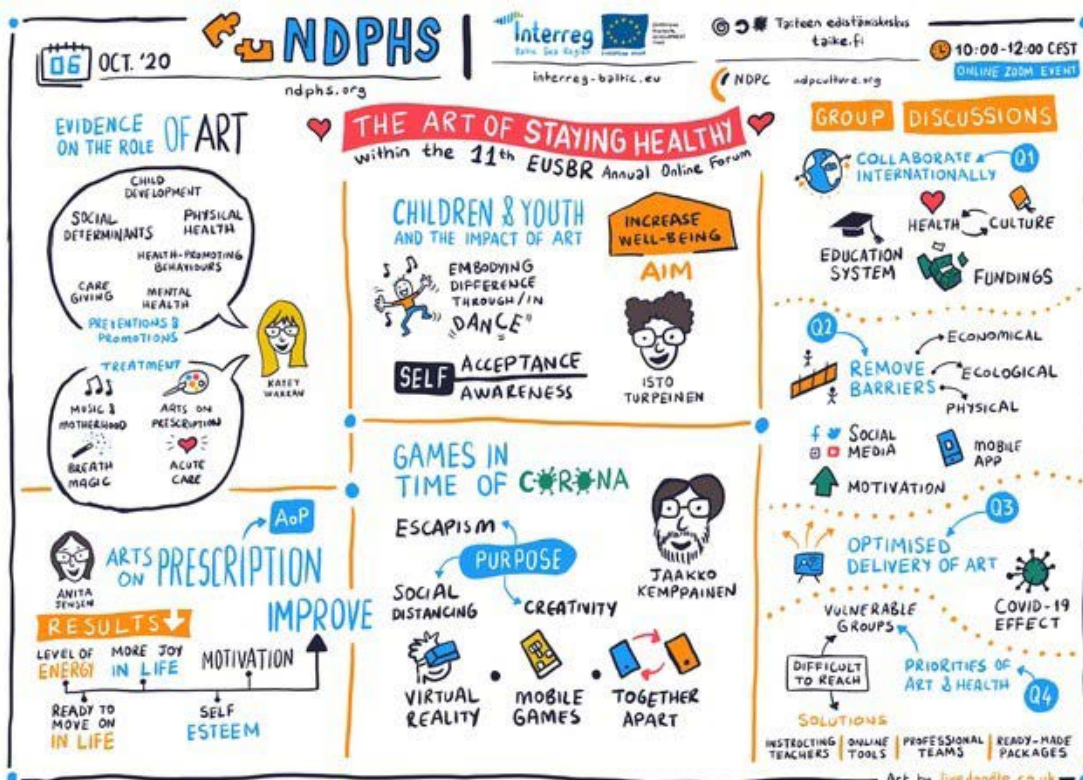 06 OCT. '20
NDPHS
ndphs.org
Interreg
Baltic Sea Region
interreg-baltic.eu
Taiteen edistämiskeskus
taike.fi
NDPC
ndpculture.org
10:00-12:00 CEST
ONLINE ZOOM EVENT
THE ART OF STAYING HEALTHY
within the 11th EUSBR Annual Online Forum
EVIDENCE
ON THE ROLE OF ART
CHILD
DEVELOPMENT
SOCIAL
DETERMINANTS
PHYSICAL
HEALTH
HEALTH-PROMOTING
BEHAVIOURS
CARE
GIVING
MENTAL
HEALTH
PREVENTIONS &
PROMOTIONS
TREATMENT
MUSIC &
MOTHERHOOD
ARTS ON
PRESCRIPTION
BREATH
MAGIC
ACUTE
CARE
KATEY
WARRAN
AoP
ARTS
ON PRESCRIPTION
ANITA
JENSEN
RESULTS
IMPROVE
LEVEL OF
ENERGY
MORE JOY
IN LIFE
MOTIVATION
READY TO
MOVE ON
IN LIFE
SELF
ESTEEM
CHILDREN & YOUTH
AND THE IMPACT OF ART
EMBODYING
DIFFERENCE
THROUGH/IN
"DANCE"
SELF
ACCEPTANCE
AWARENESS
INCREASE
WELL-BEING
AIM
ISTO
TURPEINEN
GAMES IN
TIME OF CORONA
ESCAPISM
PURPOSE
SOCIAL
DISTANCING
CREATIVITY
JAAKKO
KEMPPAINEN
VIRTUAL
REALITY
MOBILE
GAMES
TOGETHER
APART
GROUP DISCUSSIONS
COLLABORATE
INTERNATIONALLY
Q1
HEALTH
CULTURE
EDUCATION
SYSTEM
FUNDINGS
Q2
REMOVE
BARRIERS
ECONOMICAL
ECOLOGICAL
PHYSICAL
SOCIAL
MEDIA
MOBILE
APP
MOTIVATION
Q3
OPTIMISED
DELIVERY OF ART
COVID-19
EFFECT
VULNERABLE
GROUPS
DIFFICULT
TO REACH
PRIORITIES OF
ART & HEALTH
Q4
SOLUTIONS
INSTRUCTING
TEACHERS
ONLINE
TOOLS
PROFESSIONAL
TEAMS
READY-MADE
PACKAGES
Art by livedoodle.co.uk